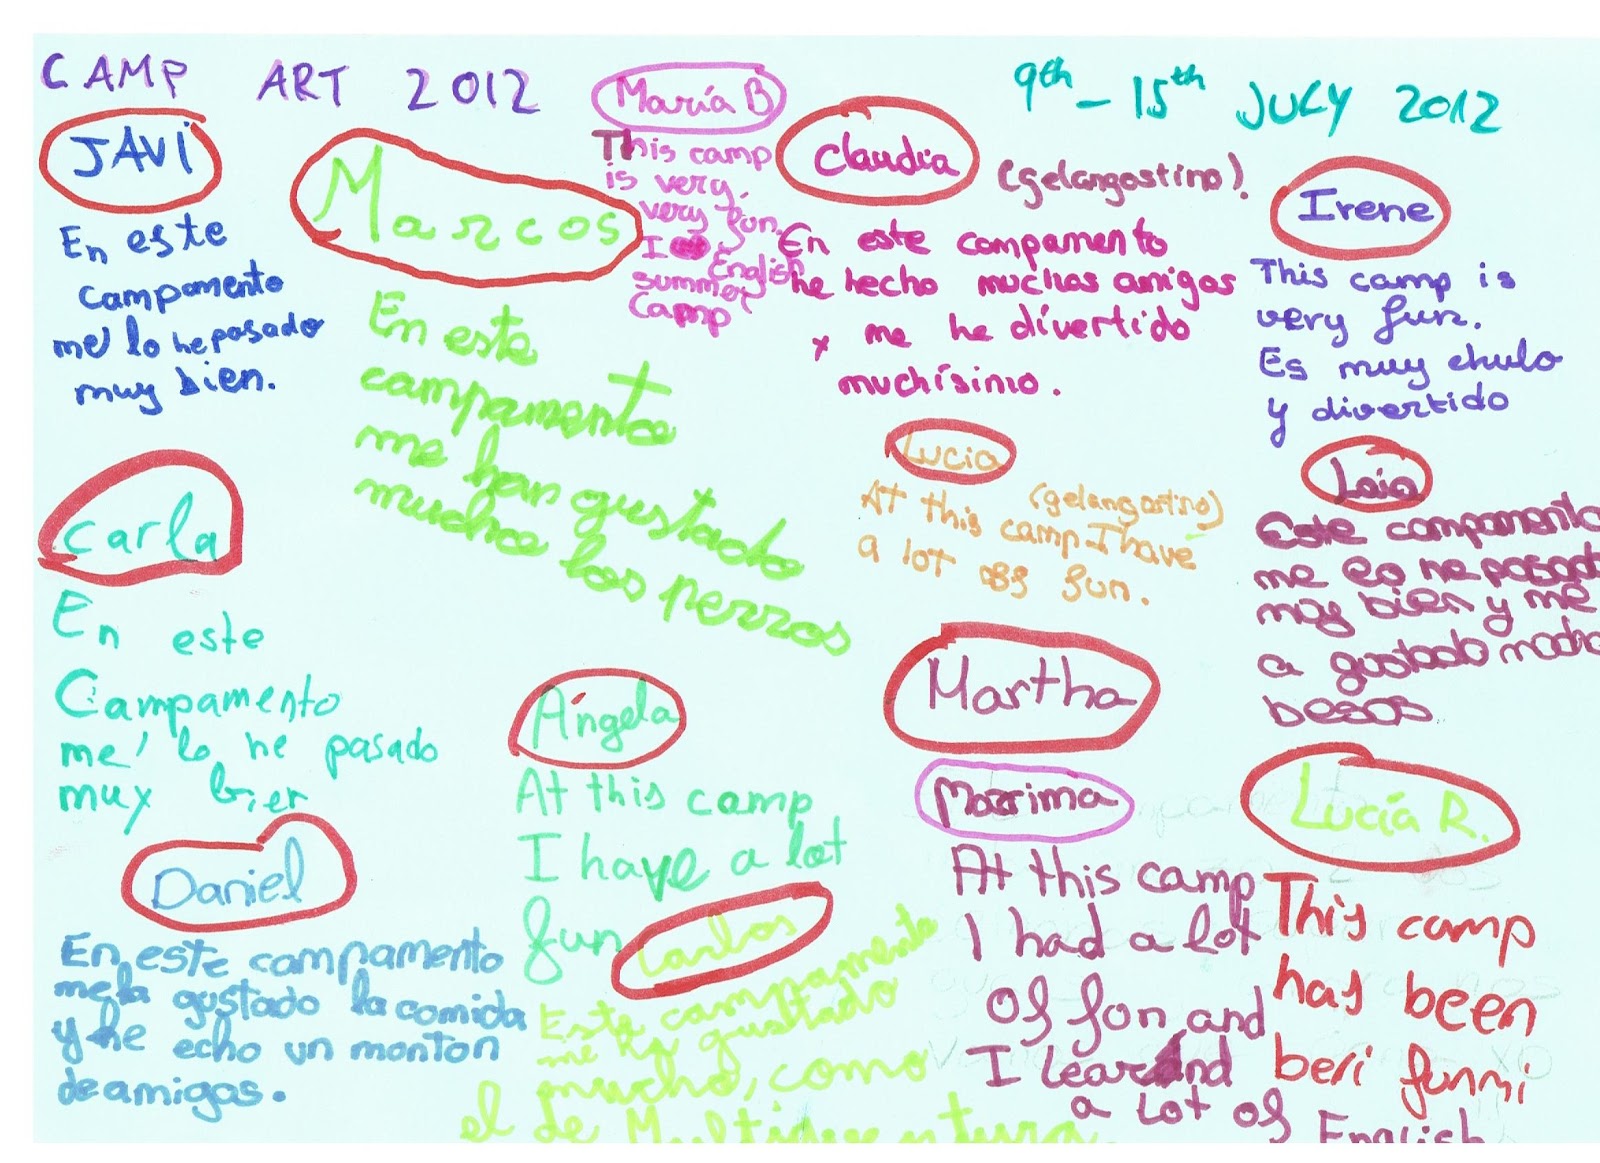 CAMP ART 2012
9th - 15th JULY 2012
JAVI
En este
campamento
me lo he pasado
muy bien.
Marcos
En este
campamento
me han gustado
mucho los perros
María B
This camp
is very,
very fun.
I English
summer
Camp
Claudia
(gelangostino).
En este campamento
he hecho muchas amigas
y me he divertido
muchísimo.
Irene
This camp is
very fun.
Es muy chulo
y divertido
Carla
En este
Campamento
me lo he pasado
muy bien
Lucia
(gelangostino)
At this camp I have
a lot off fun.
Laia
Este campamento
me lo he pasad
muy bien y me
a gustado mucho
besos
Daniel
En este campamento
me la gustado la comida
y he echo un monton
de amigas.
Ángela
At this camp
I have a lot
fun
Carlos
Este campamento
me ha gustado
mucho, como
el de Multiaventura
Martha
Marrima
At this camp
I had a lot
of fon and
I learnd
a lot of
English
Lucía R.
This camp
has been
beri funni